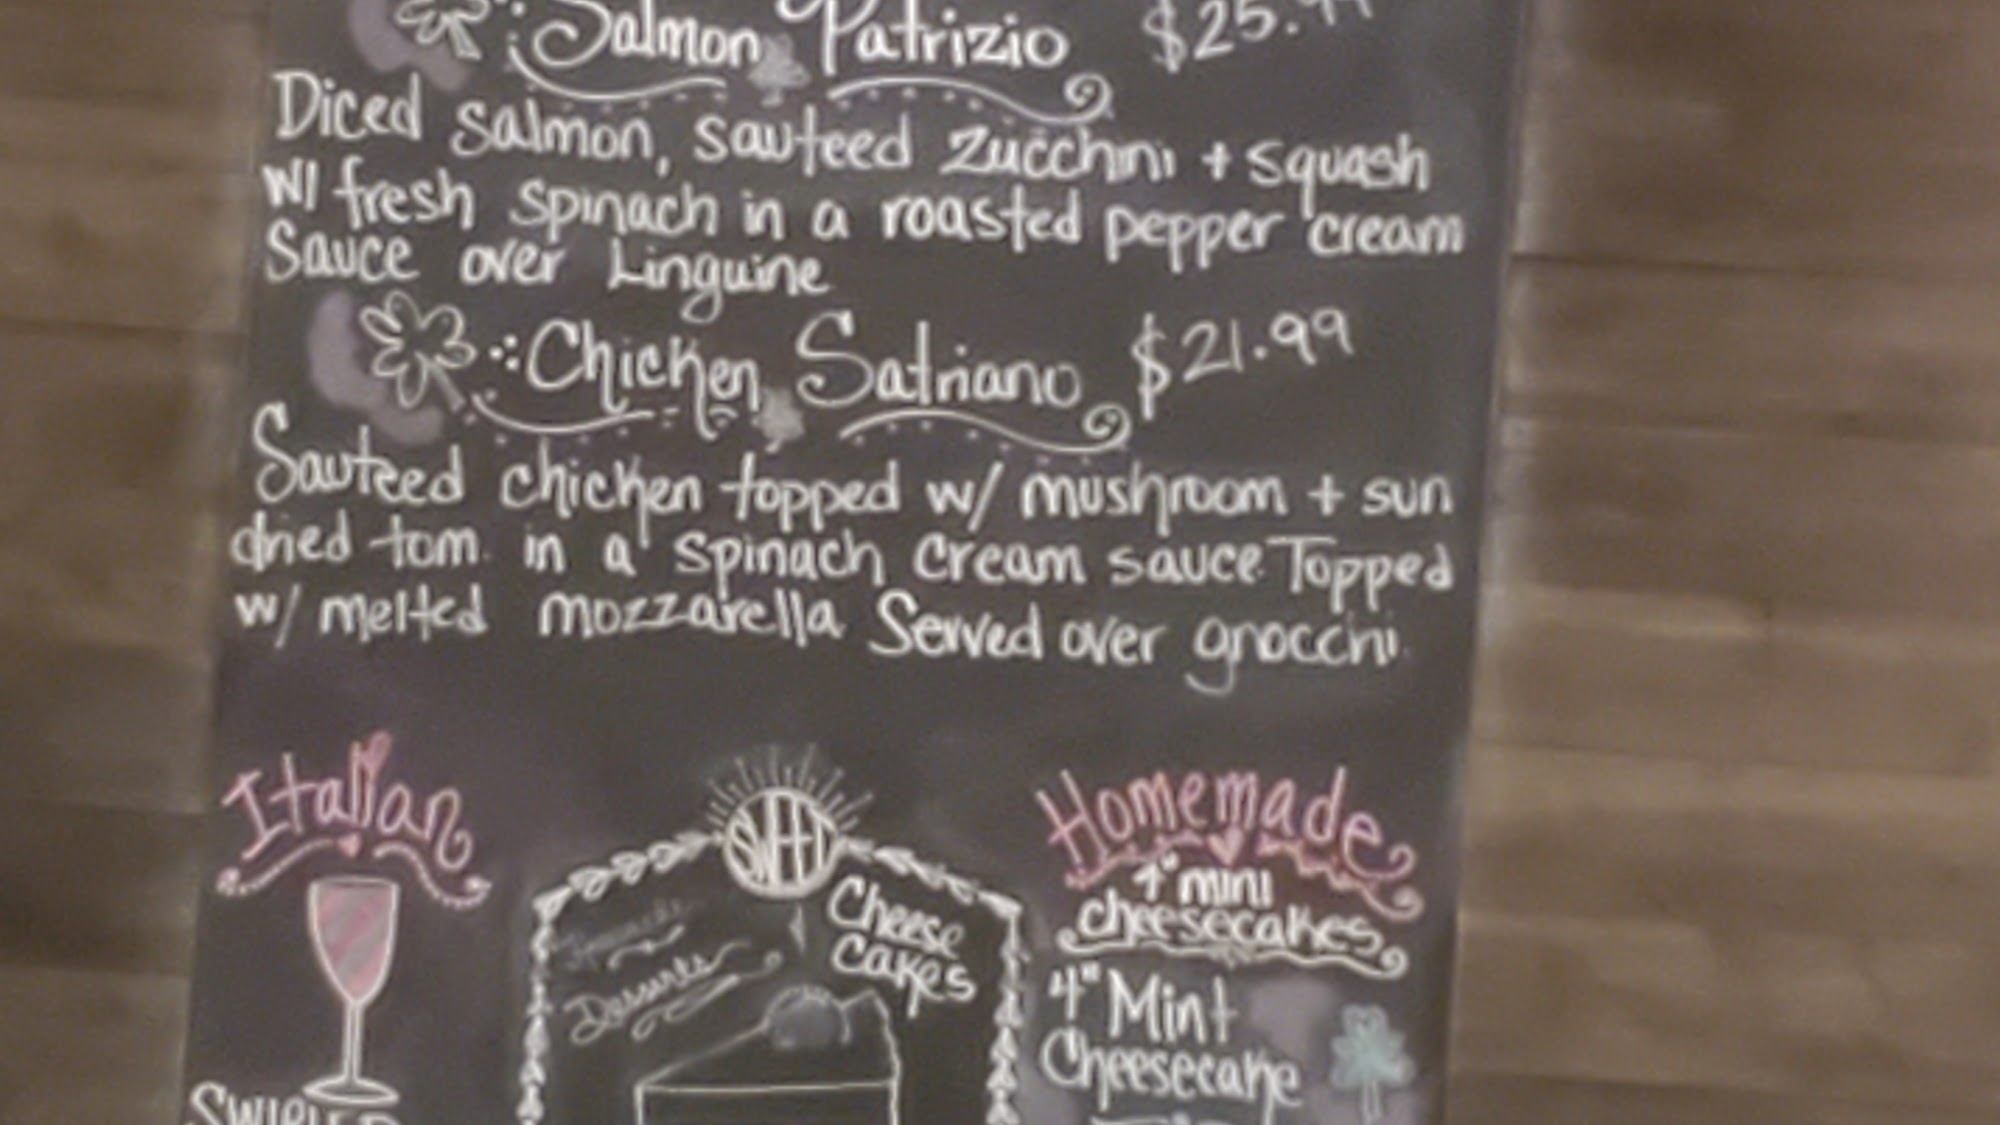 Salmon Patrizio $25.99
Diced salmon, sauteed zucchini + squash
w/ fresh spinach in a roasted pepper cream
Sauce over Linguine
Chicken Satriano $21.99
Sauteed chicken topped w/ mushroom + sun
dried tom. in a spinach cream sauce. Topped
w/ melted mozzarella. Served over gnocchi.
Italian
SWIRLED
SWEET
Desserts
Cheese
Cakes
Homemade
4" mini
cheesecakes
4" Mint
Cheesecake